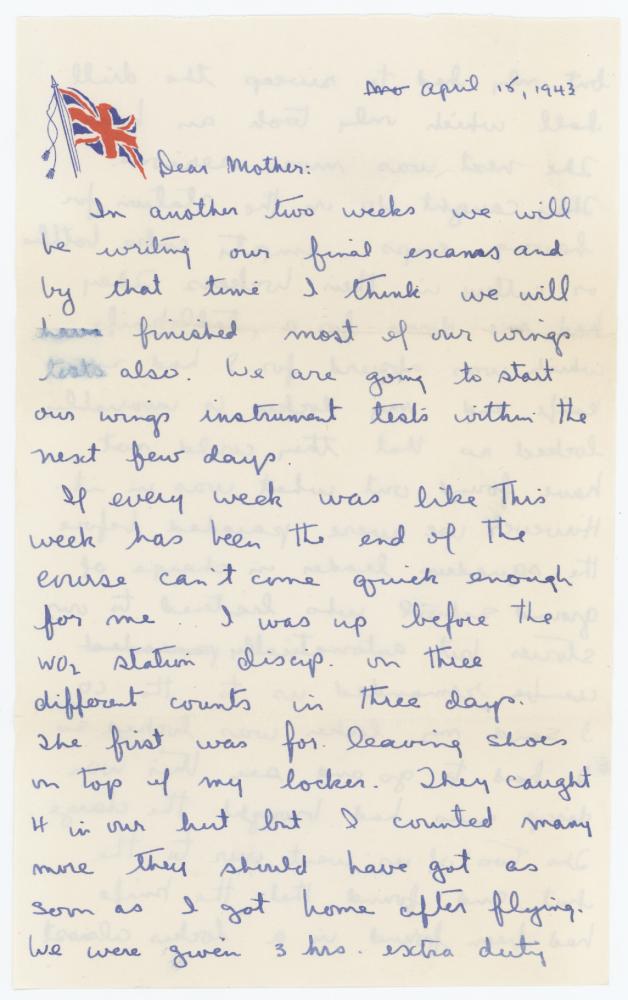 April 15, 1943
Dear Mother:
In another two weeks we will
be writing our final exams and
by that time I think we will
have finished most of our wings
tests also. We are going to start
our wings instrument tests within the
next few days.
If every week was like this
week has been the end of the
course can't come quick enough
for me. I was up before the
WO2 station discip. on three
different counts in three days.
The first was for leaving shoes
on top of my locker. They caught
4 in our hut but I counted many
more they should have got as
soon as I got home after flying.
We were given 3 hrs. extra duty